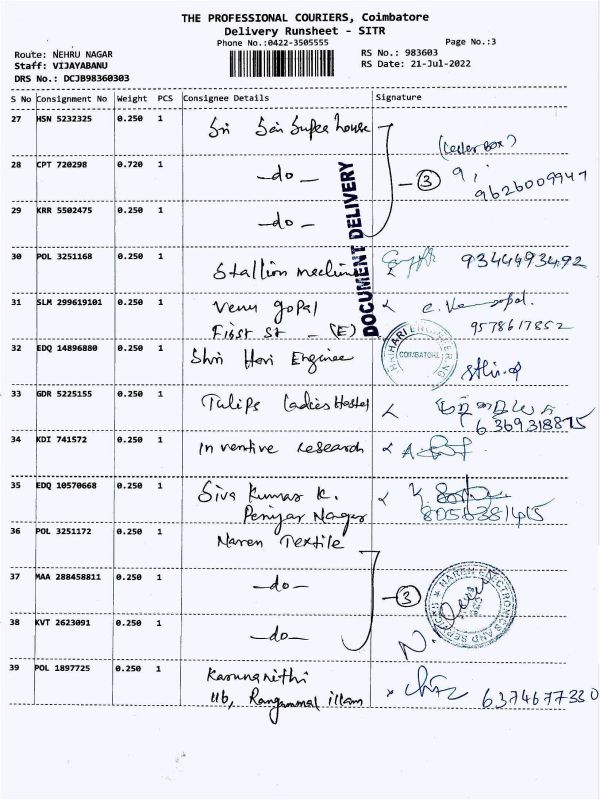 THE PROFESSIONAL COURIERS, Coimbatore
Delivery Runsheet - SITR
Phone No.:0422-3505555
Page No.:3
Route: NEHRU NAGAR
Staff: VIJAYABANU
DRS No.: DCJB98360303
RS No.: 983603
RS Date: 21-Jul-2022
S No Consignment No Weight PCS Consignee Details Signature
27 HSN 5232325 0.250 1 Sri Sai Supra house
(Letter box)
28 CPT 720298 0.720 1 -do- 3
9626009947
29 KRR 5502475 0.250 1 -do-
DOCUMENT DELIVERY
30 POL 3251168 0.250 1 Stallion machine 9344493492
31 SLM 299619101 0.250 1 Venu gopal
First St - (E) 9578617852
32 EDQ 14896880 0.250 1 Shri Hari Enginee
HARI ENGINEERING COIMBATORE
33 GDR 5225155 0.250 1 Tulips Ladies Hostel
6369318875
34 KDI 741572 0.250 1 inventive research
35 EDQ 10570668 0.250 1 Siva Kumar K.
Periyar Nagar 8056381415
36 POL 3251172 0.250 1 Naren Textile
37 MAA 288458811 0.250 1 -do- 3
HARSH ELECTRONICS AND SERVICE
38 KVT 2623091 0.250 1 -do-
39 POL 1897725 0.250 1 Karunanithi
11b, Rangammal illam 6374677330